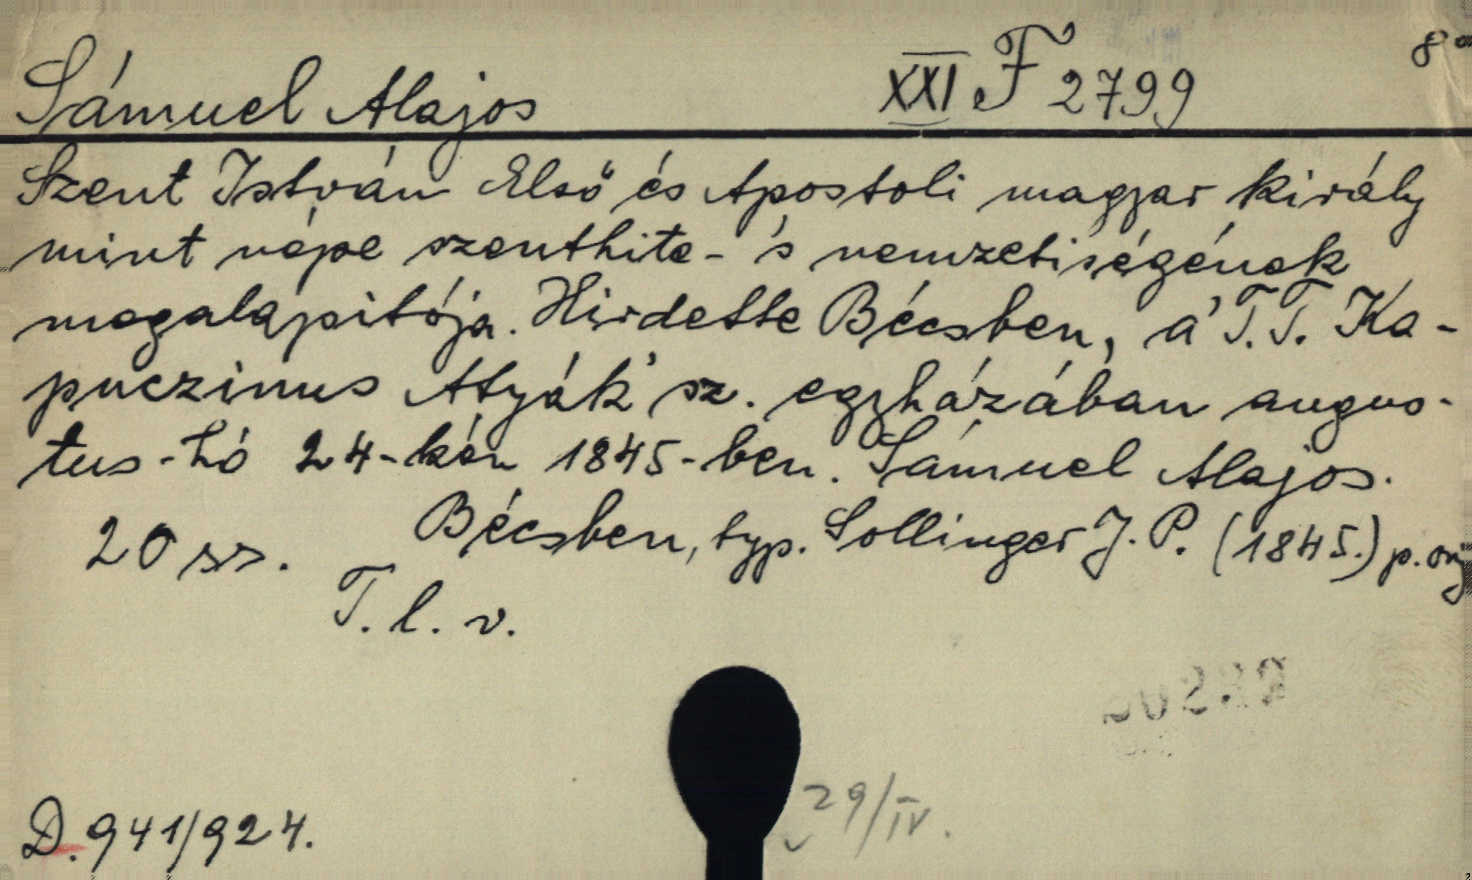 Sámuel Alajos XXI F 2799 8°
Szent István Első és Apostoli magyar király
mint népe szenthite- 's nemzetiségének
megalapitója. Hirdette Bécsben, a' T.T. Ka-
puczinus Atyák' sz. egyházában augus-
tus-hó 24-kén 1845-ben. Sámuel Alajos.
Bécsben, typ. Sollinger J. P. (1845.) p.
20 ss.
T. l. v.
29/IV.
D. 941/924.